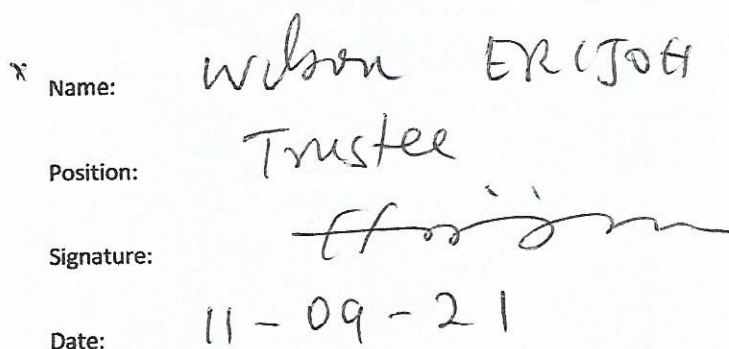 Name: Wilson ERIJOH
Position: Trustee
Signature:
Date: 11-09-21